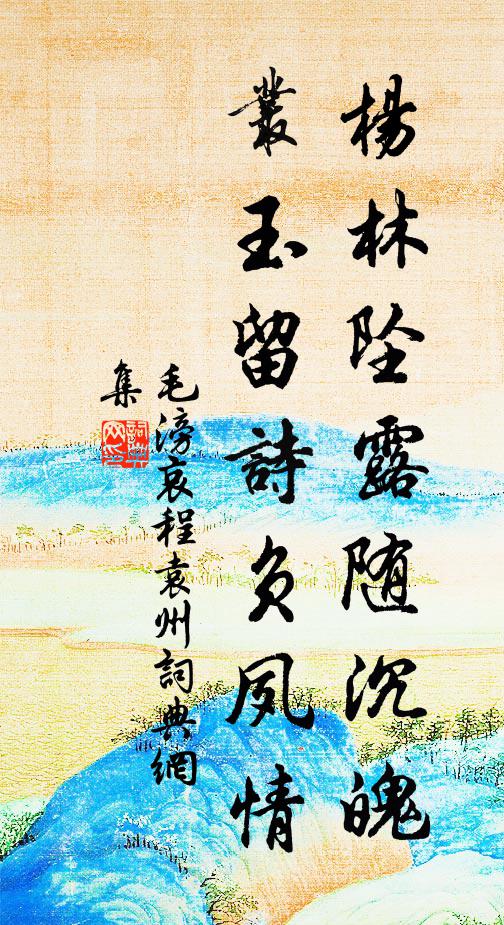 楊林坠露随沉魄
叢玉留詩负夙情
毛滂哀程袁州詞典網
集